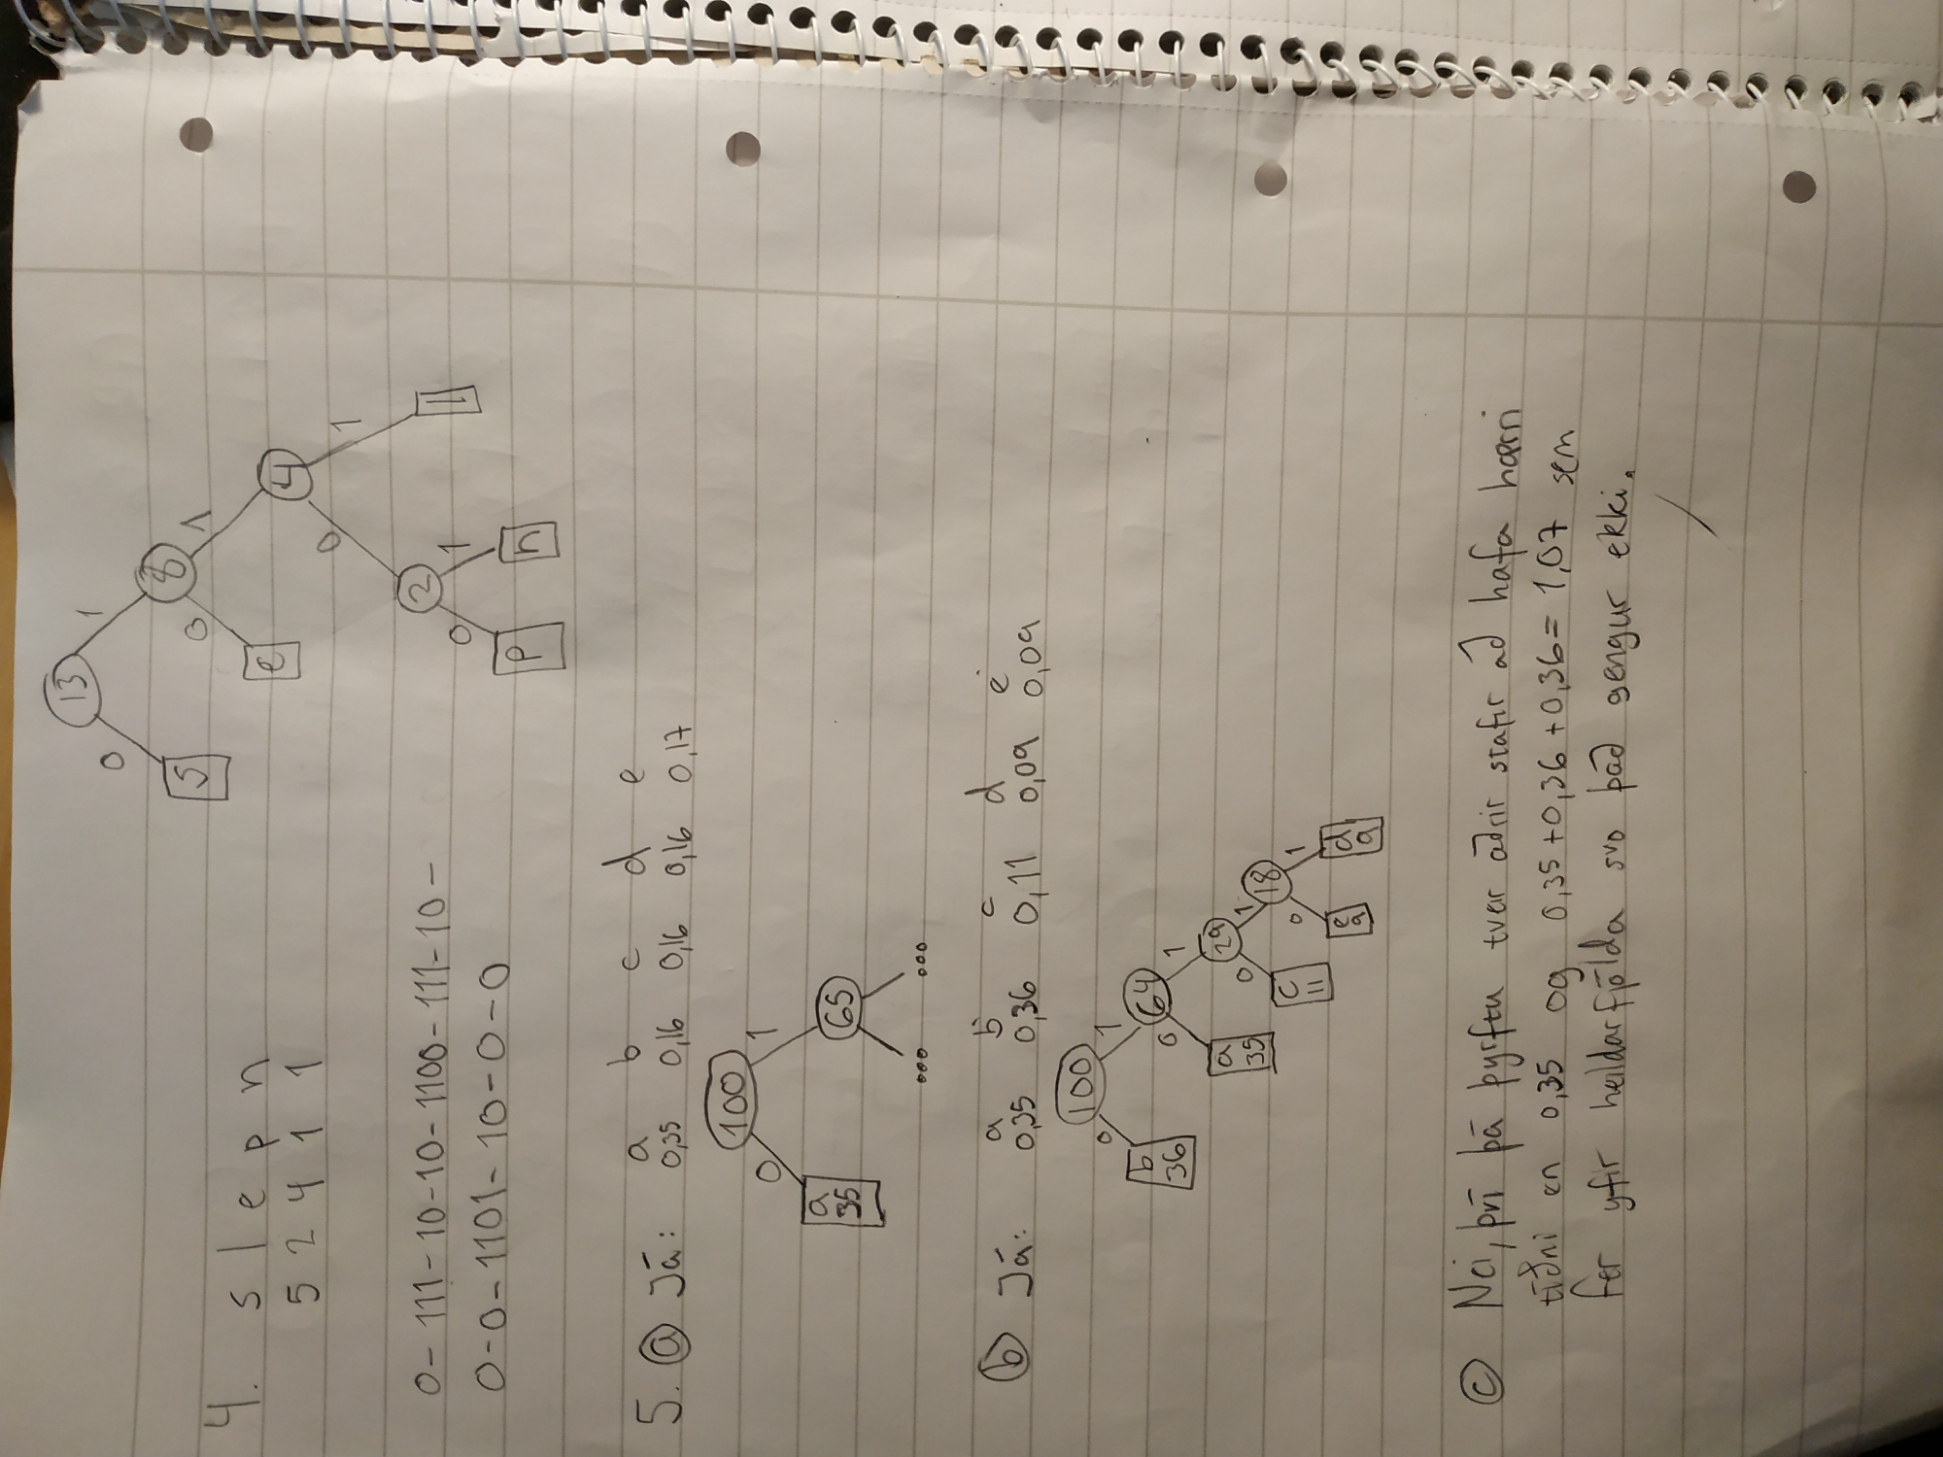 13
0 1
s 8
0 1
4. s l e p n
e 4
5 2 4 1 1
0 1
2 l
0- 111- 10-10- 1100- 111- 10-
0 1
0-0- 1101- 10-0-0
p n
a b c d e
5. ⓐ Já: 0,35 0,16 0,16 0,16 0,17
100
0 1
a
35 65
... ...
a b c d e
ⓑ Já: 0,35 0,36 0,11 0,09 0,09
100
0 1
b
36 64
0 1
a
35 29
0 1
c
11 18
0 1
e d
9 9
ⓒ Nei, því þá þyrftu tveir aðrir stafir að hafa hærri
tíðni en 0,35 og 0,35+0,36+0,36= 1,07 sem
fer yfir heildarfjölda svo það gengur ekki.